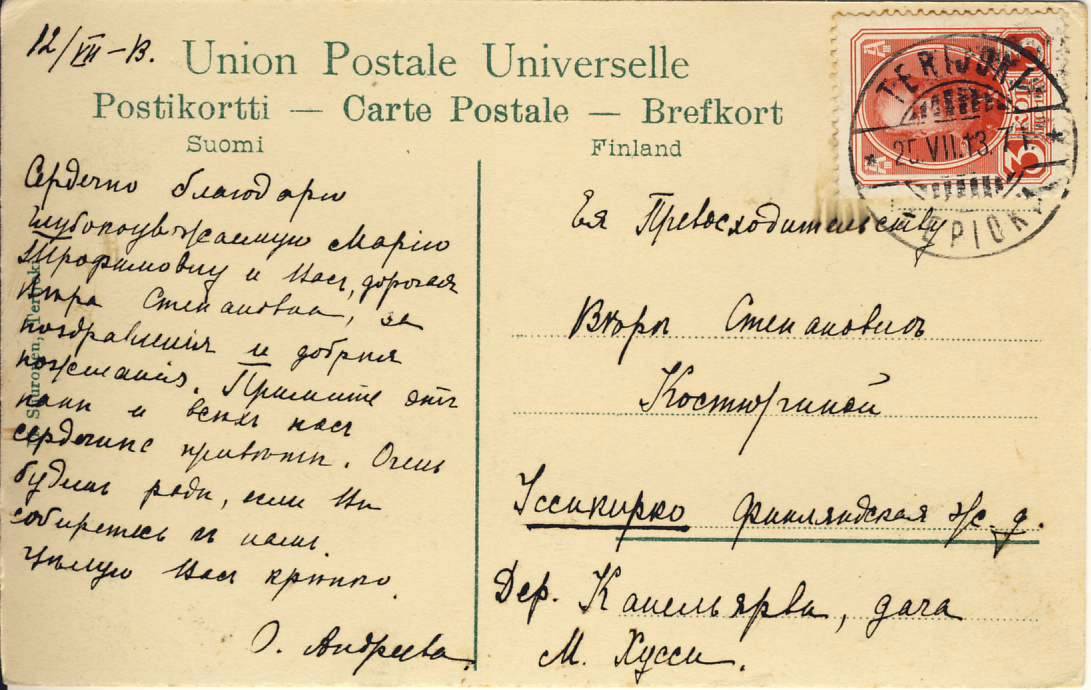 12/VII–13.
Union Postale Universelle
Postikortti — Carte Postale — Brefkort
Suomi Finland
TERIJOKI
25.VII.13. 7
ТЕРІОКИ
3 КОП
Сердечно благодарю
глубокоуважаемую Марію
Трофимовну и Васъ, дорогая
Вѣра Степановна, за
поздравленія и добрыя
пожеланія. Примите отъ
папы и всѣхъ насъ
сердечные привѣты. Очень
будемъ рады, если Вы
соберетесь къ намъ.
Цѣлую Васъ крѣпко.
О. Андреева.
Ея Превосходительству
Вѣрѣ Степановнѣ
Костюриной
Уссикирко Финляндская ж. д.
Дер. Канельярви, дача
М. Хусси.
Terijoki